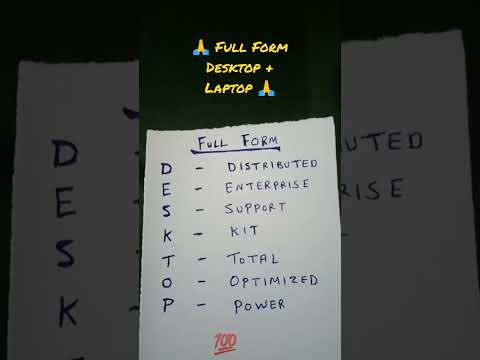 🙏 Full Form
Desktop +
Laptop 🙏
Full Form
D - Distributed
E - Enterprise
S - Support
K - Kit
T - Total
O - Optimized
P - Power
💯